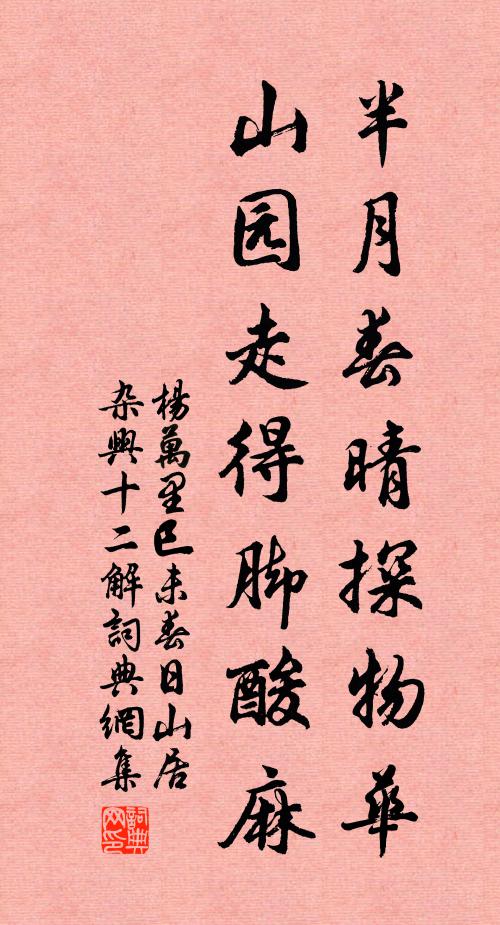 半月春晴探物華
山园走得脚酸麻
楊萬里巳未春日山居
杂興十二解詞典網集
詞典
网印